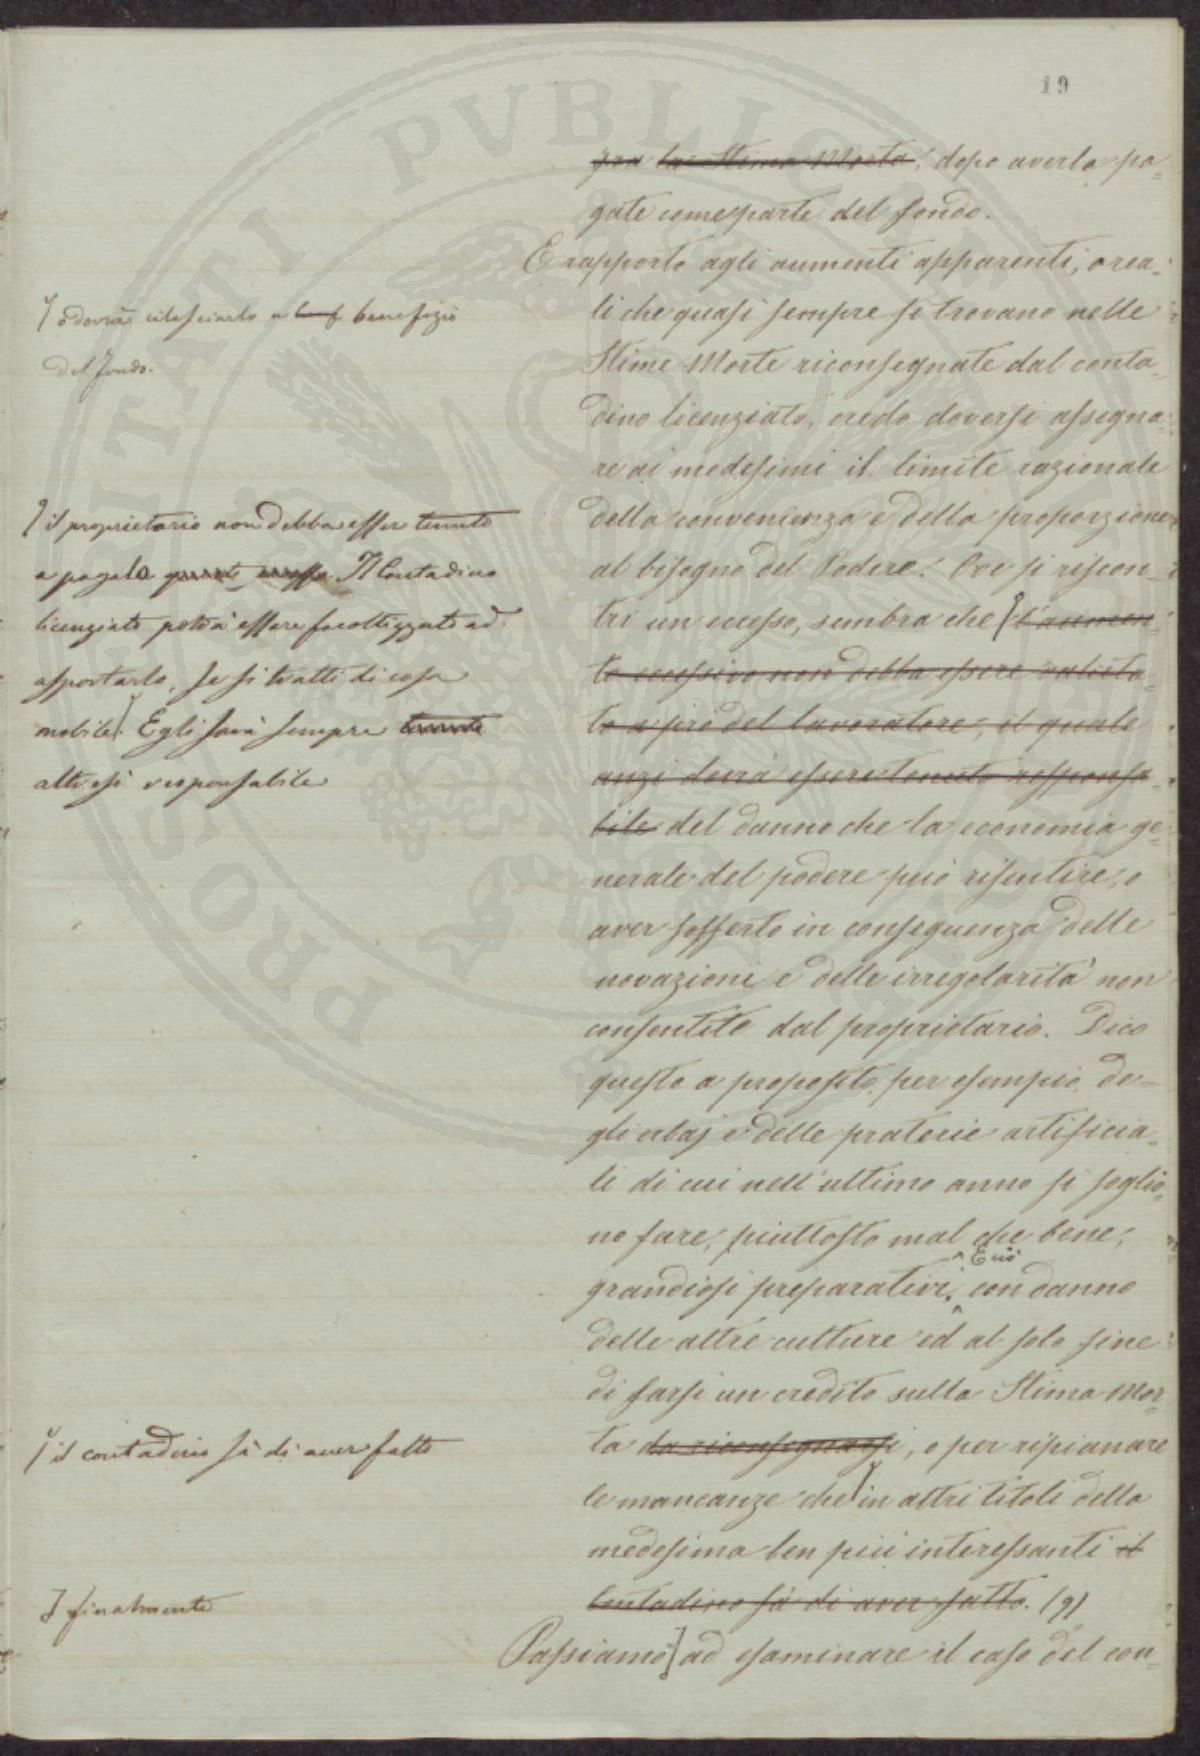 19
gra la Stima Morta; dopo averla pa=
gate come parte del fondo.
E rapporto agli aumenti apparenti, o rea=
li che quasi sempre si trovano nelle
Stime Morte riconsegnate dal conta=
dino licenziato, credo doversi assegna=
re ai medesimi il limite razionale
della convenienza e della proporzione
al bisogno del Podere. Ove si riscon=
tri un eccesso, sembra che l'aumen=
to eccessivo non debba essere valuta=
to a pro del lavoratore, il quale
anzi dovrà essere tenuto responsa=
bile del danno che la economia ge=
nerale del podere può risentire, o
aver sofferto in conseguenza delle
novazioni e delle irregolarità non
consentite dal proprietario. Dico
questo a proposito, per esempio, de=
gli erbaj e delle praterie artificia=
li di cui nell'ultimo anno si soglio=
no fare, piuttosto mal che bene,
E ciò
grandiosi preparativi, con danno
delle altre culture ed al solo fine
di farsi un credito sulla Stima Mor=
ta da riconsegnarsi, o per ripianare
le mancanze che in altri titoli della
medesima ben più interessanti il
Contadino sà di aver fatto. (9)
Passiamo ad esaminare il caso del con=
o dovrà rilasciarlo a benefizio
del fondo.
il proprietario non debba esser tenuto
a pagarlo Il Contadino
licenziato potrà essere facoltizzato ad
asportarlo, se si tratti di cosa
mobile. Egli sarà sempre tenuto
altresì responsabile
il contadino sà di aver fatto
finalmente
PROSPERITATI PVBLICAE